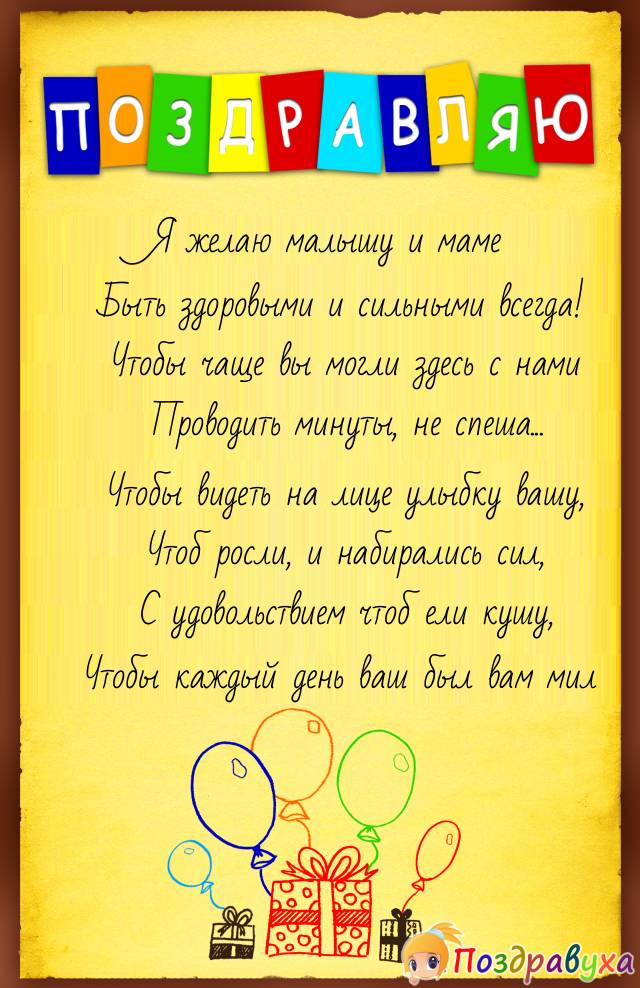 ПОЗДРАВЛЯЮ
Я желаю малышу и маме
Быть здоровыми и сильными всегда!
Чтобы чаще вы могли здесь с нами
Проводить минуты, не спеша...
Чтобы видеть на лице улыбку вашу,
Чтоб росли, и набирались сил,
С удовольствием чтоб ели кушу,
Чтобы каждый день ваш был вам мил
Поздравуха